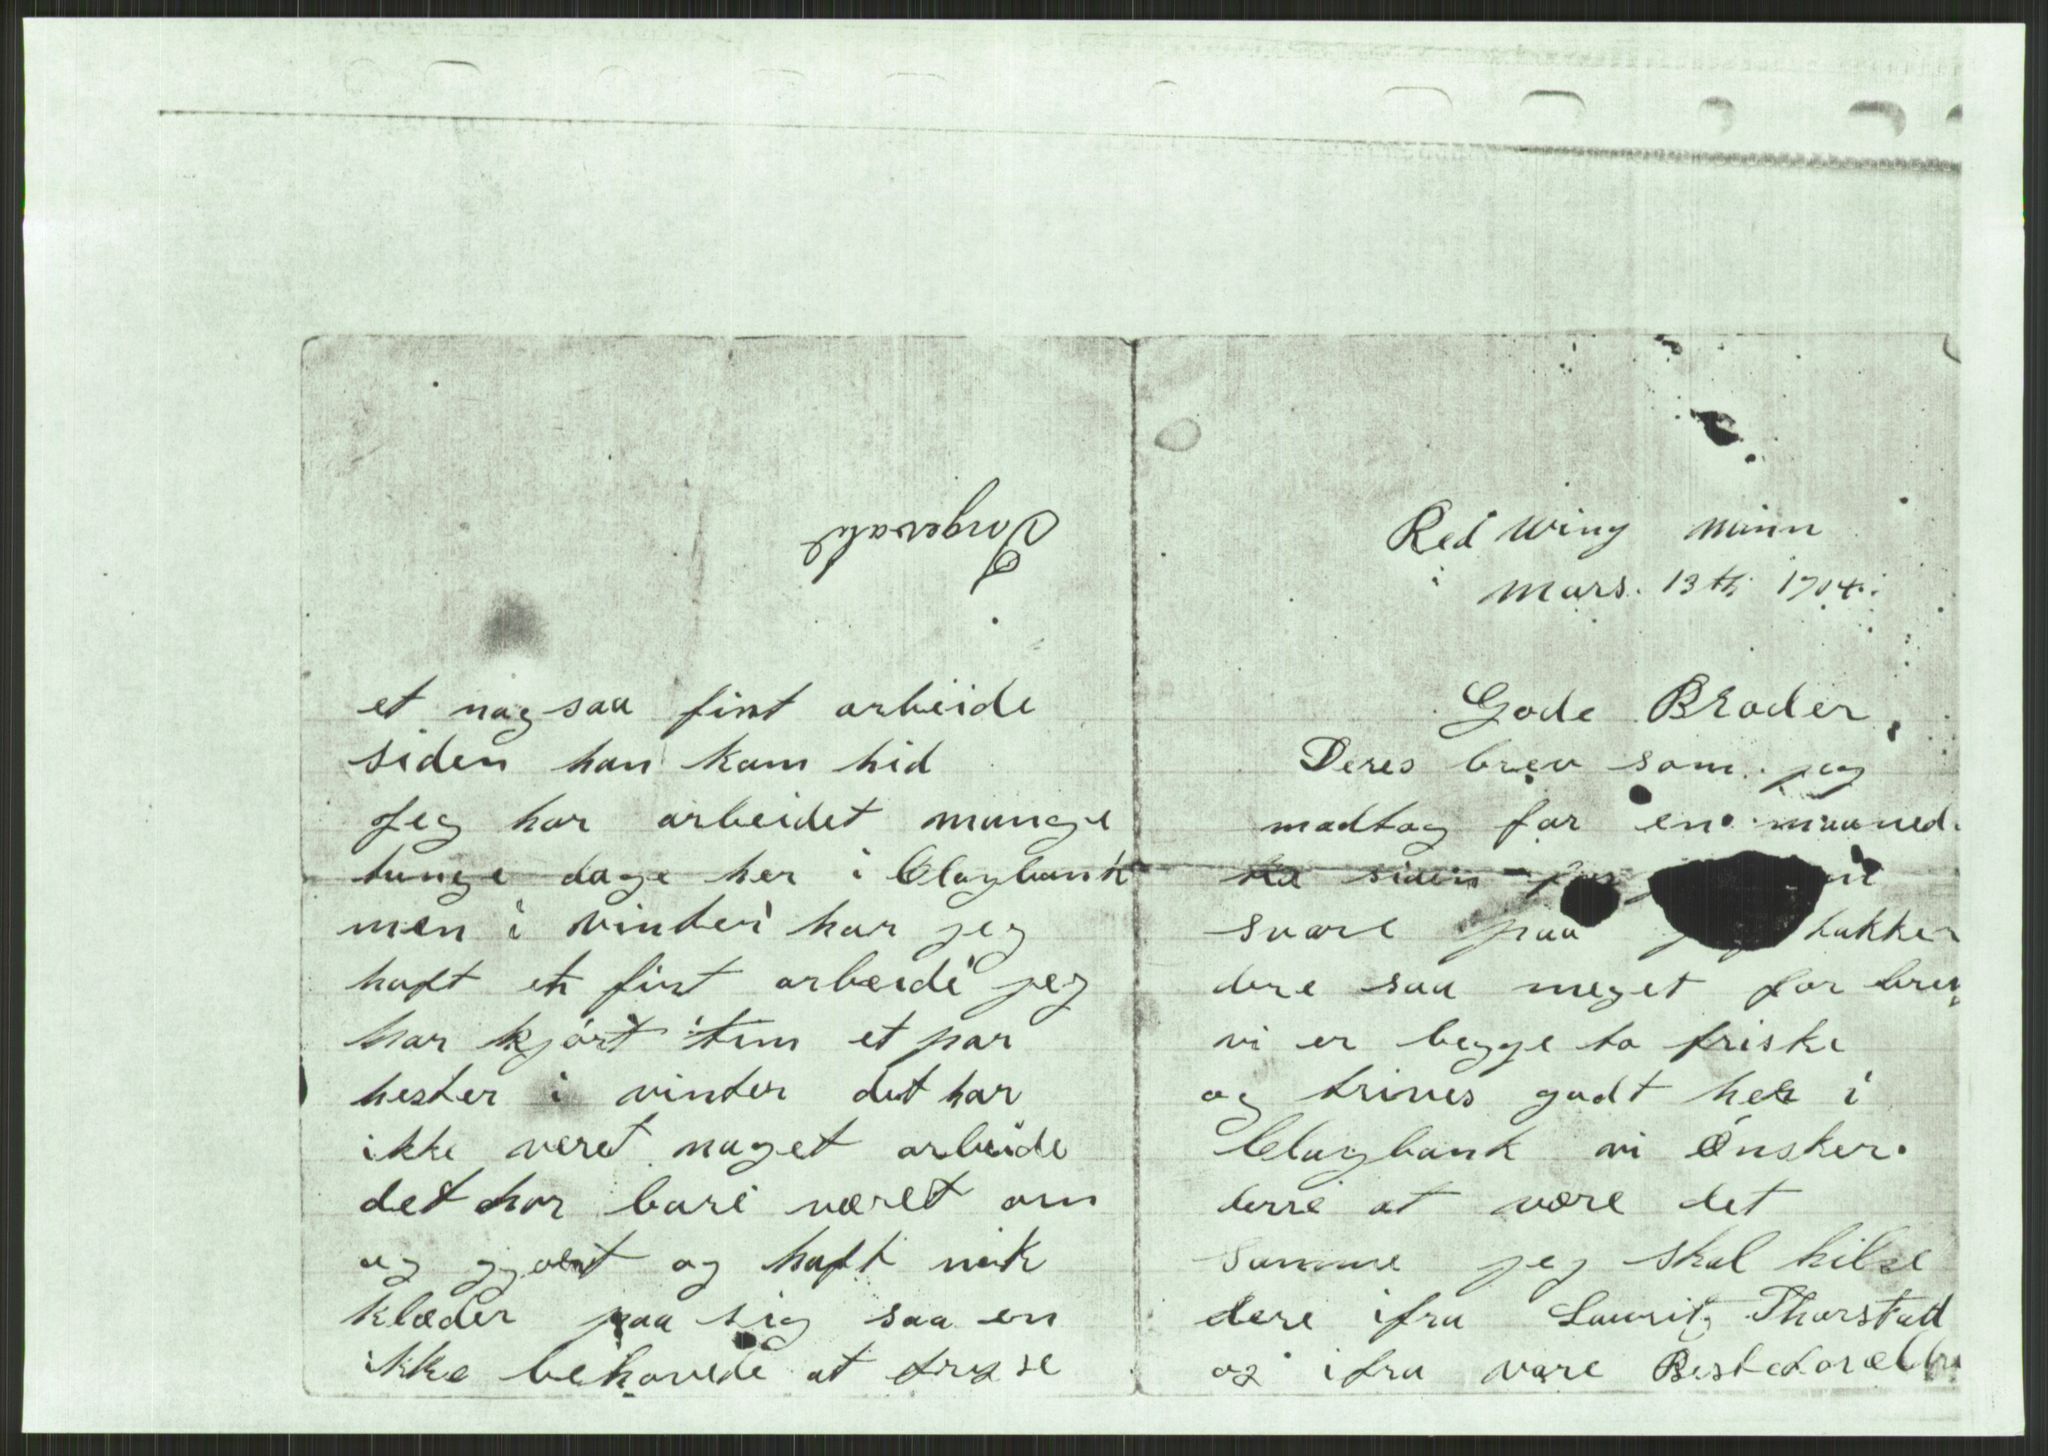 Red Wing Minn
Mars. 13th 1904.
Gode Broder,
Deres brev som jeg
modtog for en maaned
tid siden
svare paa takker
dere saa meget for brev
vi er begge to friske
og trives godt her i
Claybank vi Ønsker.
derre at være det
samme jeg skal hilse
dere ifra Lauritz Thorstad
og ifra vore Besteforæl
Torgevald
et nog saa fint arbeide
siden han kom hid
Jeg har arbeidet mange
tunge dage her i Claybank
men i vinter har jeg
haft et fint arbeide jeg
har kjørt tim et par
hester i vinter det har
ikke veret noget arbeide
det har bare været om
og gjort og haft nok
klæder paa sig saa en
ikke behøvede at fryse